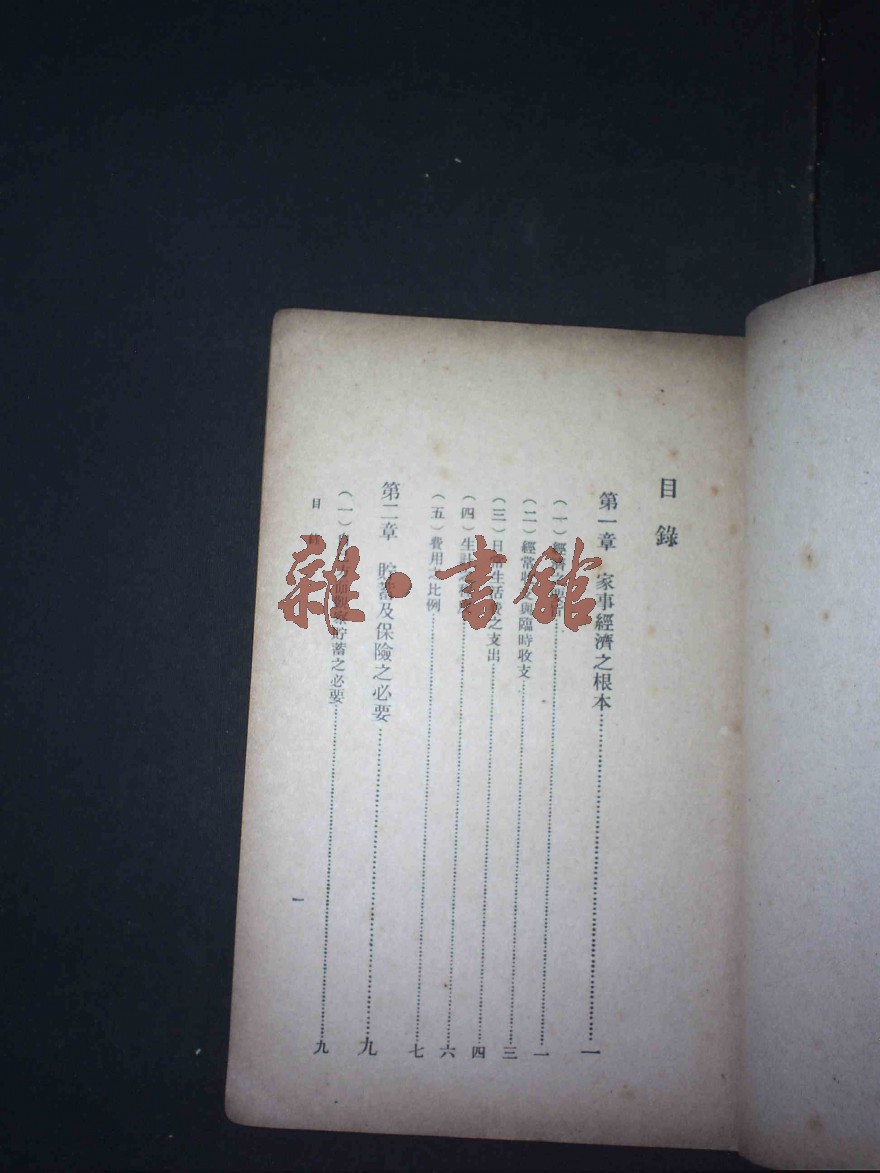 目錄
第一章 家事經濟之根本 一
(一)經濟 一
(二)經常收 與臨時收支 三
(三)日常生活費之支出 四
(四)生計 六
(五)費用之比例 七
第二章 貯蓄及保險之必要 九
(一) 貯蓄之必要 九
目
一
雜·書館